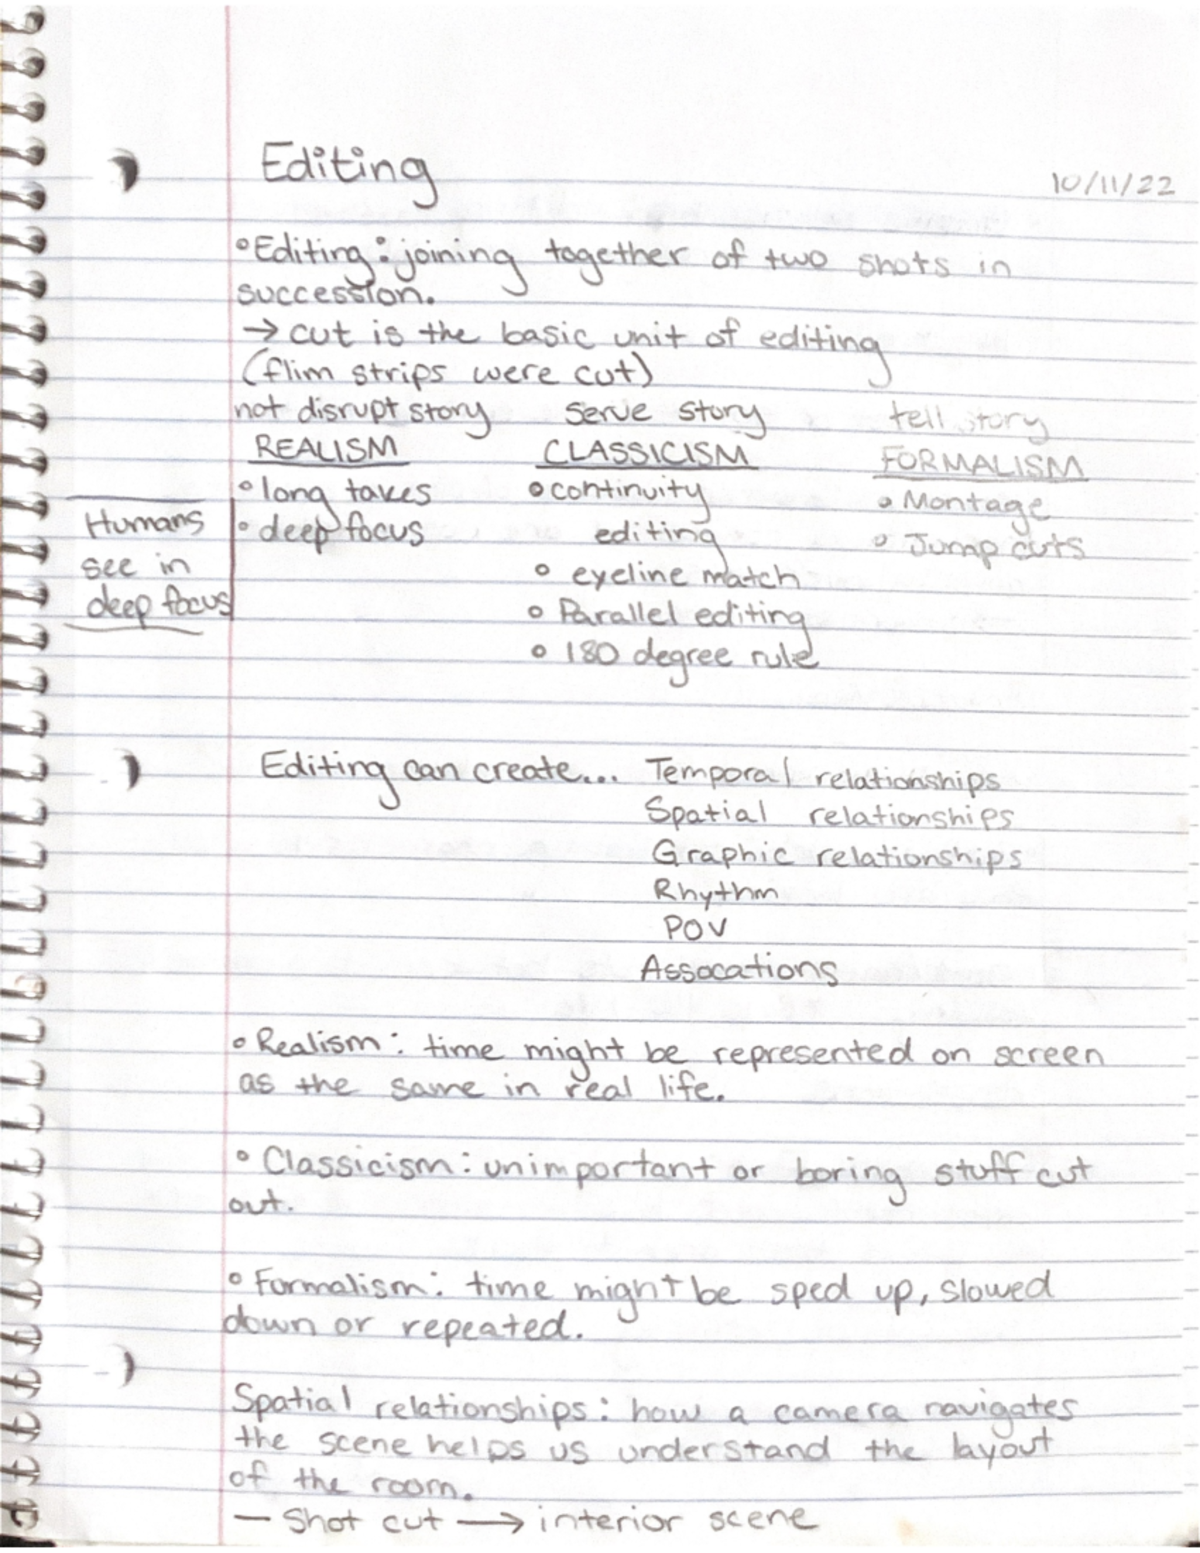 Editing
10/11/22
• Editing: joining together of two shots in
succession.
→ cut is the basic unit of editing
(flim strips were cut)
not disrupt story serve story tell story
REALISM CLASSICISM FORMALISM
• long takes • continuity • Montage
Humans • deep focus editing • Jump cuts
see in • eyeline match
deep focus • Parallel editing
• 180 degree rule
Editing can create... Temporal relationships
Spatial relationships
Graphic relationships
Rhythm
POV
Assocations
• Realism: time might be represented on screen
as the same in real life.
• Classicism: unimportant or boring stuff cut
out.
• Formalism: time might be sped up, slowed
down or repeated.
Spatial relationships: how a camera navigates
the scene helps us understand the layout
of the room.
— Shot cut → interior scene